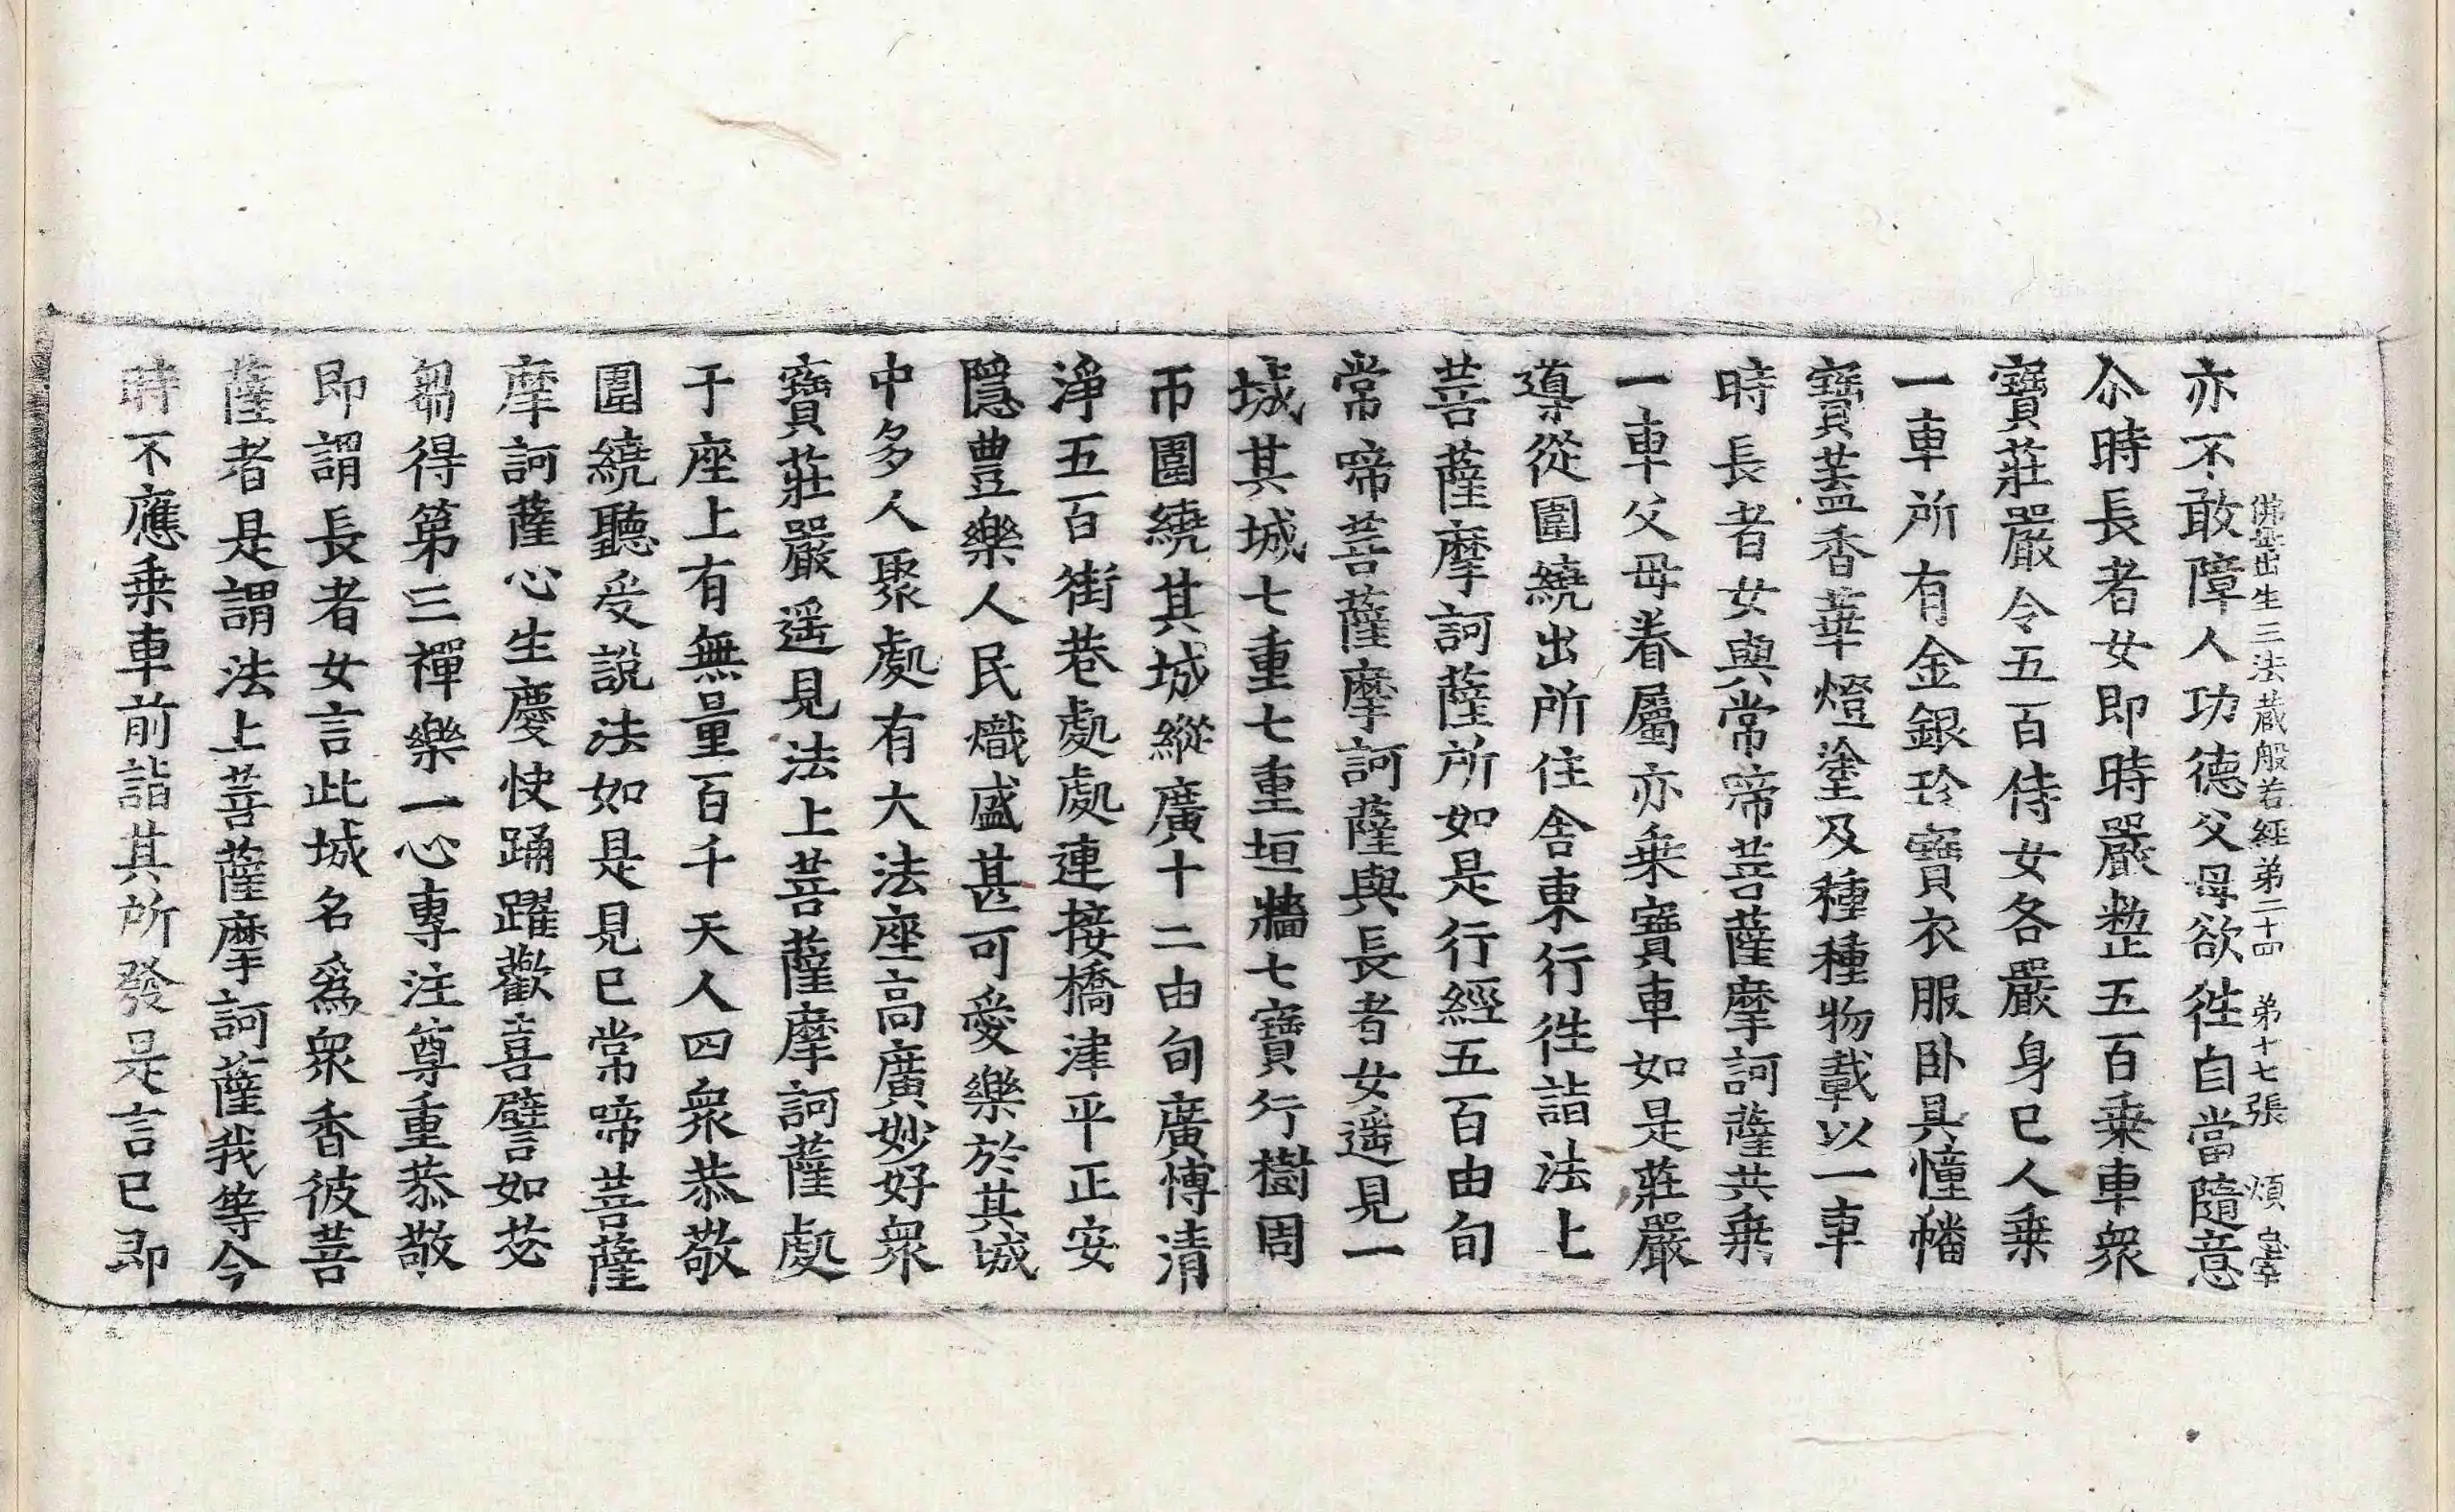 佛母出生三法藏般若經第二十四 第十七張 煩
亦不敢障人功德父母欲徃自當隨意
尒時長者女即時嚴整五百乗車衆
寶莊嚴令五百侍女各嚴身已人乗
一車所有金銀珍寶衣服卧具憧幡
寶盖香華燈塗及種種物載以一車
時長者女與常啼菩薩摩訶薩共乗
一車父母眷屬亦乗寶車如是莊嚴
導從圍繞出所住舍東行徃詣法上
菩薩摩訶薩所如是行經五百由旬
常啼菩薩摩訶薩與長者女遥見一
城其城七重七重垣牆七寶行樹周
帀圍繞其城縱廣十二由旬廣愽清
淨五百街巷處處連接橋津平正安
隱豊樂人民熾盛甚可愛樂於其城
中多人聚處有大法座高廣妙好衆
寶莊嚴遥見法上菩薩摩訶薩處
于座上有無量百千天人四衆恭敬
圍繞聽受說法如是見已常啼菩薩
摩訶薩心生慶快踊躍歡喜譬如苾
芻得第三禪樂一心專注尊重恭敬
即謂長者女言此城名爲衆香彼菩
薩者是謂法上菩薩摩訶薩我等今
時不應乗車前詣其所發是言已即